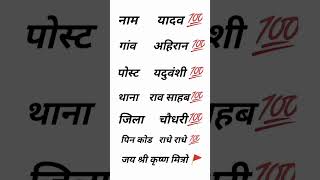 नाम यादव 💯
गांव अहिरान 💯
पोस्ट यदुवंशी 💯
थाना राव साहब 💯
जिला चौधरी 💯
पिन कोड राधे राधे 💯
जय श्री कृष्ण मित्रो 🚩